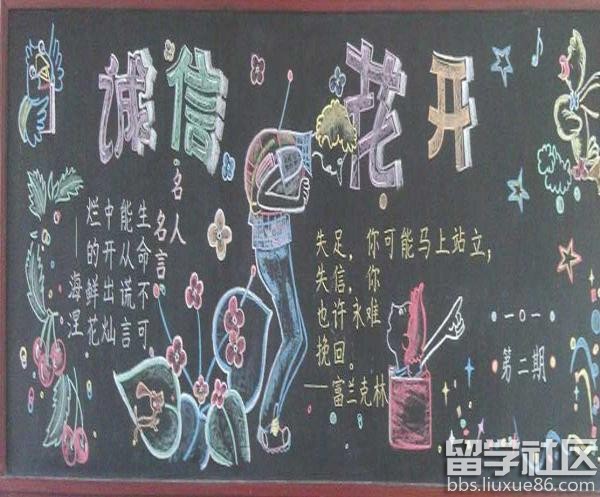 诚信花开
名人名言
生命不可
能从谎言
中开出灿
烂的鲜花
—海涅
失足，你可能马上站立，
失信，你
也许永难
挽回。
——富兰克林
一〇一
第二期
留学社区
bbs.liuxue86.com